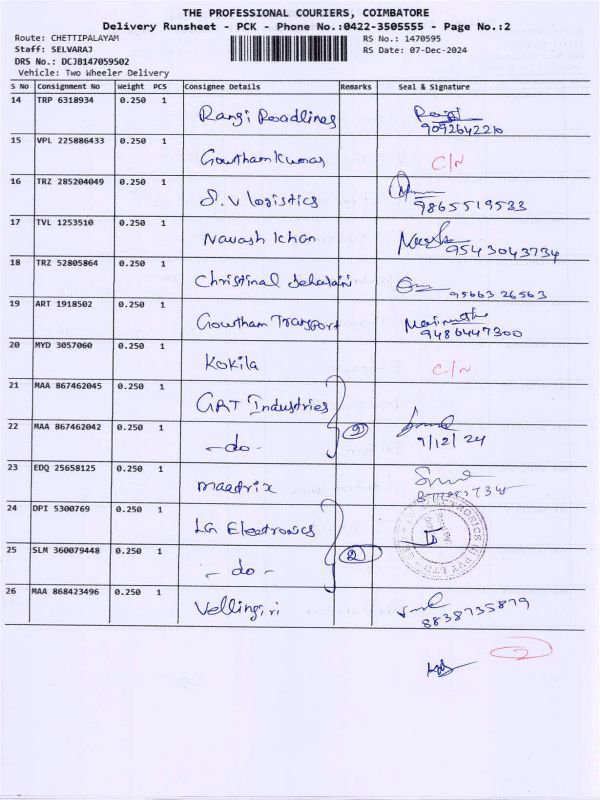 THE PROFESSIONAL COURIERS, COIMBATORE
Delivery Runsheet - PCK - Phone No.:0422-3505555 - Page No.:2
Route: CHETTIPALAYAM RS No.: 1470595
Staff: SELVARAJ RS Date: 07-Dec-2024
DRS No.: DCJB147059502
Vehicle: Two Wheeler Delivery
S No Consignment No Weight PCS Consignee Details Remarks Seal & Signature
14 TRP 6318934 0.250 1 Rangi Roadlines
9092642210
15 VPL 225886433 0.250 1 Gowtham Kumar C/N
16 TRZ 285204049 0.250 1 S.V logistics 9865519533
17 TVL 1253510 0.250 1 Navash Khan 9543043734
18 TRZ 52805864 0.250 1 Christinal 95663 26563
19 ART 1918502 0.250 1 Gowtham Transport
9486447300
20 MYD 3057060 0.250 1 Kokila C/N
21 MAA 867462045 0.250 1 GAT Industries
22 MAA 867462042 0.250 1 - do - 2 9/12/24
23 EDQ 25658125 0.250 1 Maadrix
24 DPI 5300769 0.250 1 LG Electronics
25 SLM 360079448 0.250 1 - do - 2
26 MAA 868423496 0.250 1 Vellingiri 8838735879
2